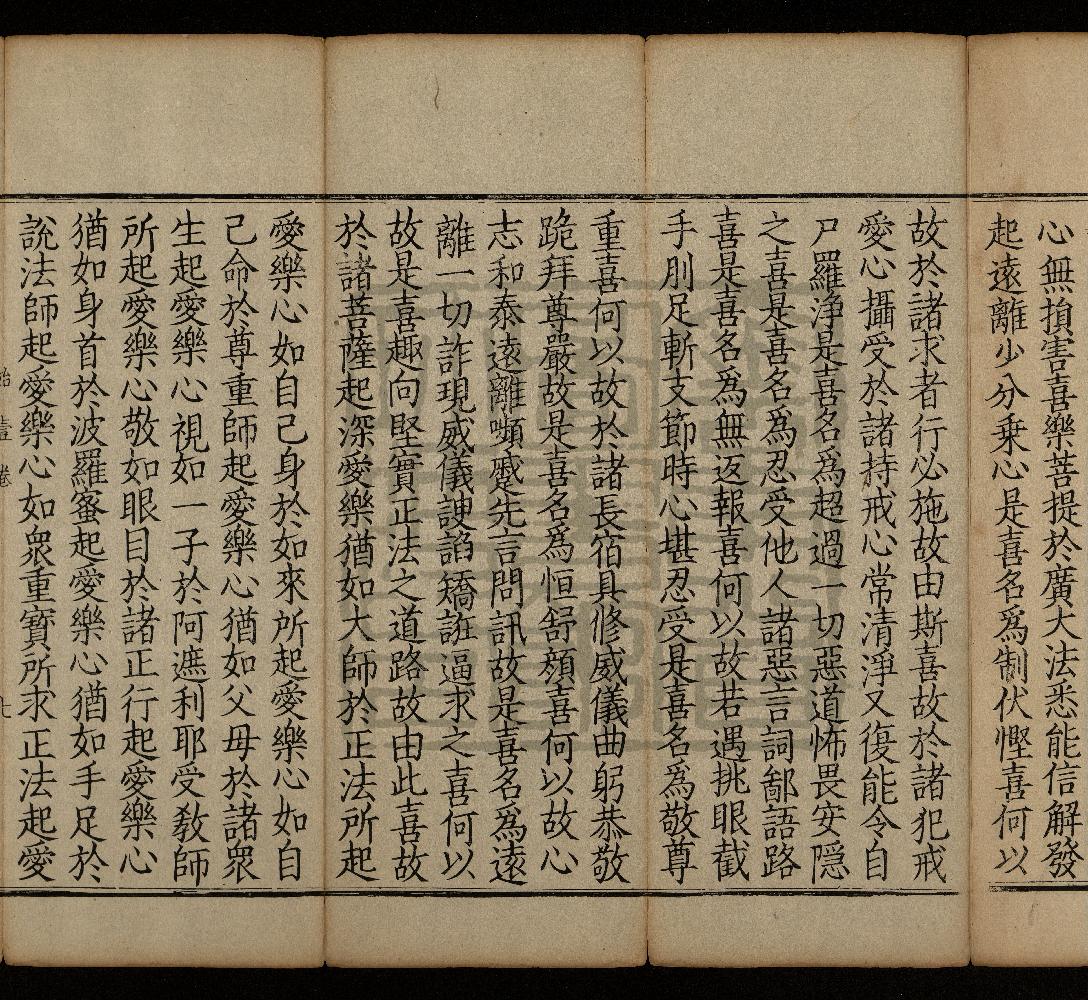 心無損害喜樂菩提於廣大法悉能信解發
起遠離少分乗心是喜名爲制伏慳喜何以
故於諸求者行必施故由斯喜故於諸犯戒
愛心攝受於諸持戒心常清淨又復能令自
尸羅淨是喜名爲超過一切惡道怖畏安隱
之喜是喜名爲忍受他人諸惡言詞鄙語路
喜是喜名爲無返報喜何以故若遇挑眼截
手刖足斬支節時心堪忍受是喜名爲敬尊
重喜何以故於諸長宿具修威儀曲躬恭敬
跪拜尊嚴故是喜名爲恒舒顏喜何以故心
志和泰遠離嚬蹙先言問訊故是喜名爲遠
離一切詐現威儀諛諂矯誑逼求之喜何以
故是喜趣向堅實正法之道路故由此喜故
於諸菩薩起深愛樂猶如大師於正法所起
愛樂心如自己身於如來所起愛樂心如自
己命於尊重師起愛樂心猶如父母於諸衆
生起愛樂心視如一子於阿遮利耶受敎師
所起愛樂心敬如眼目於諸正行起愛樂心
猶如身首於波羅蜜起愛樂心猶如手足於
說法師起愛樂心如衆重寶所求正法起愛